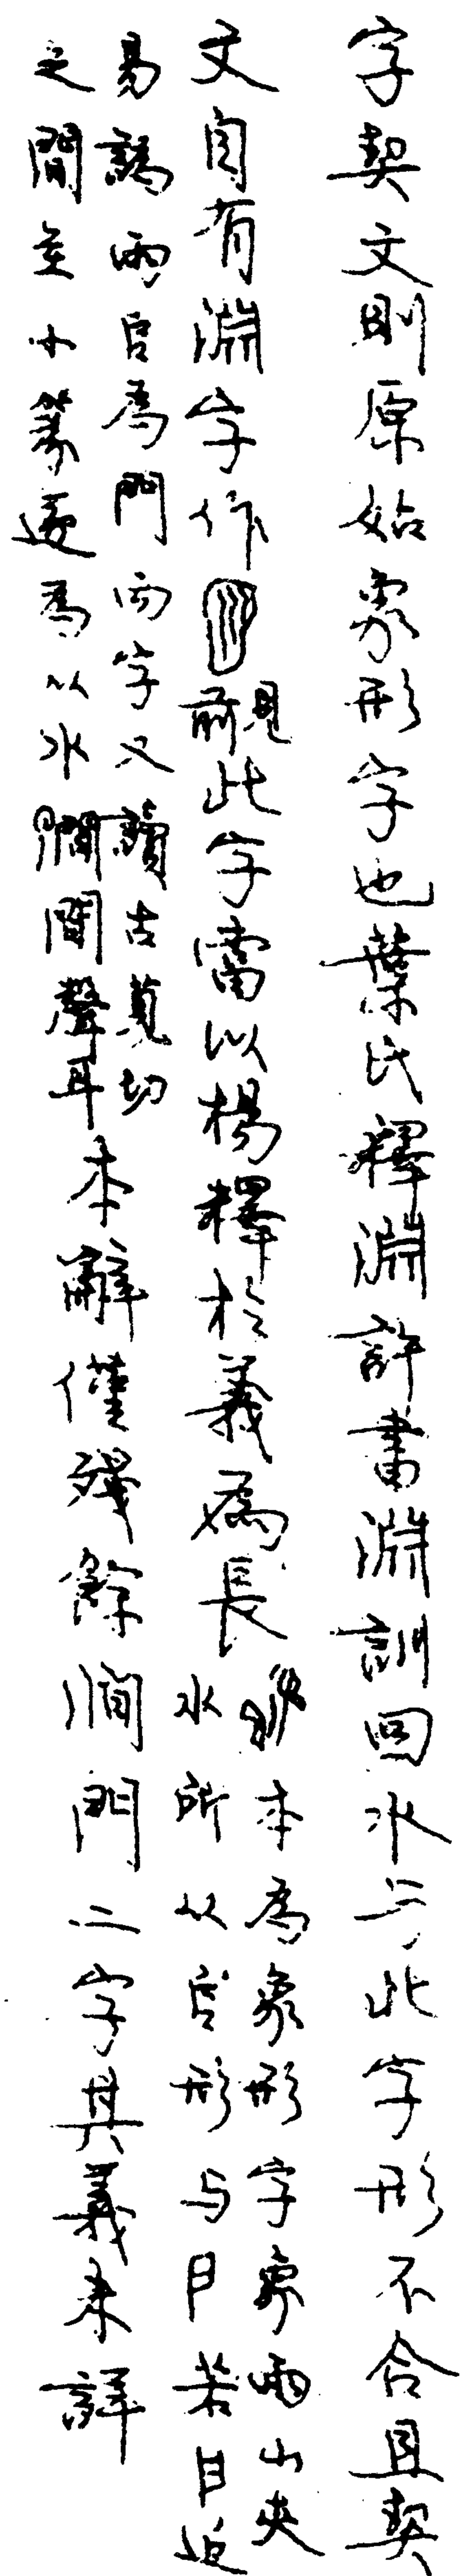 字契文則原始象形字也葉氏釋淵許書淵訓回水与此字形不合且契
文自有淵字作見前此字當以楊釋於義為長
本為象形字象兩山夾
水所从形与若近
易譌兩為門而字又讀古莧切
之間至小篆遂為从水間聲耳
本辭僅殘餘澗門二字其義未詳